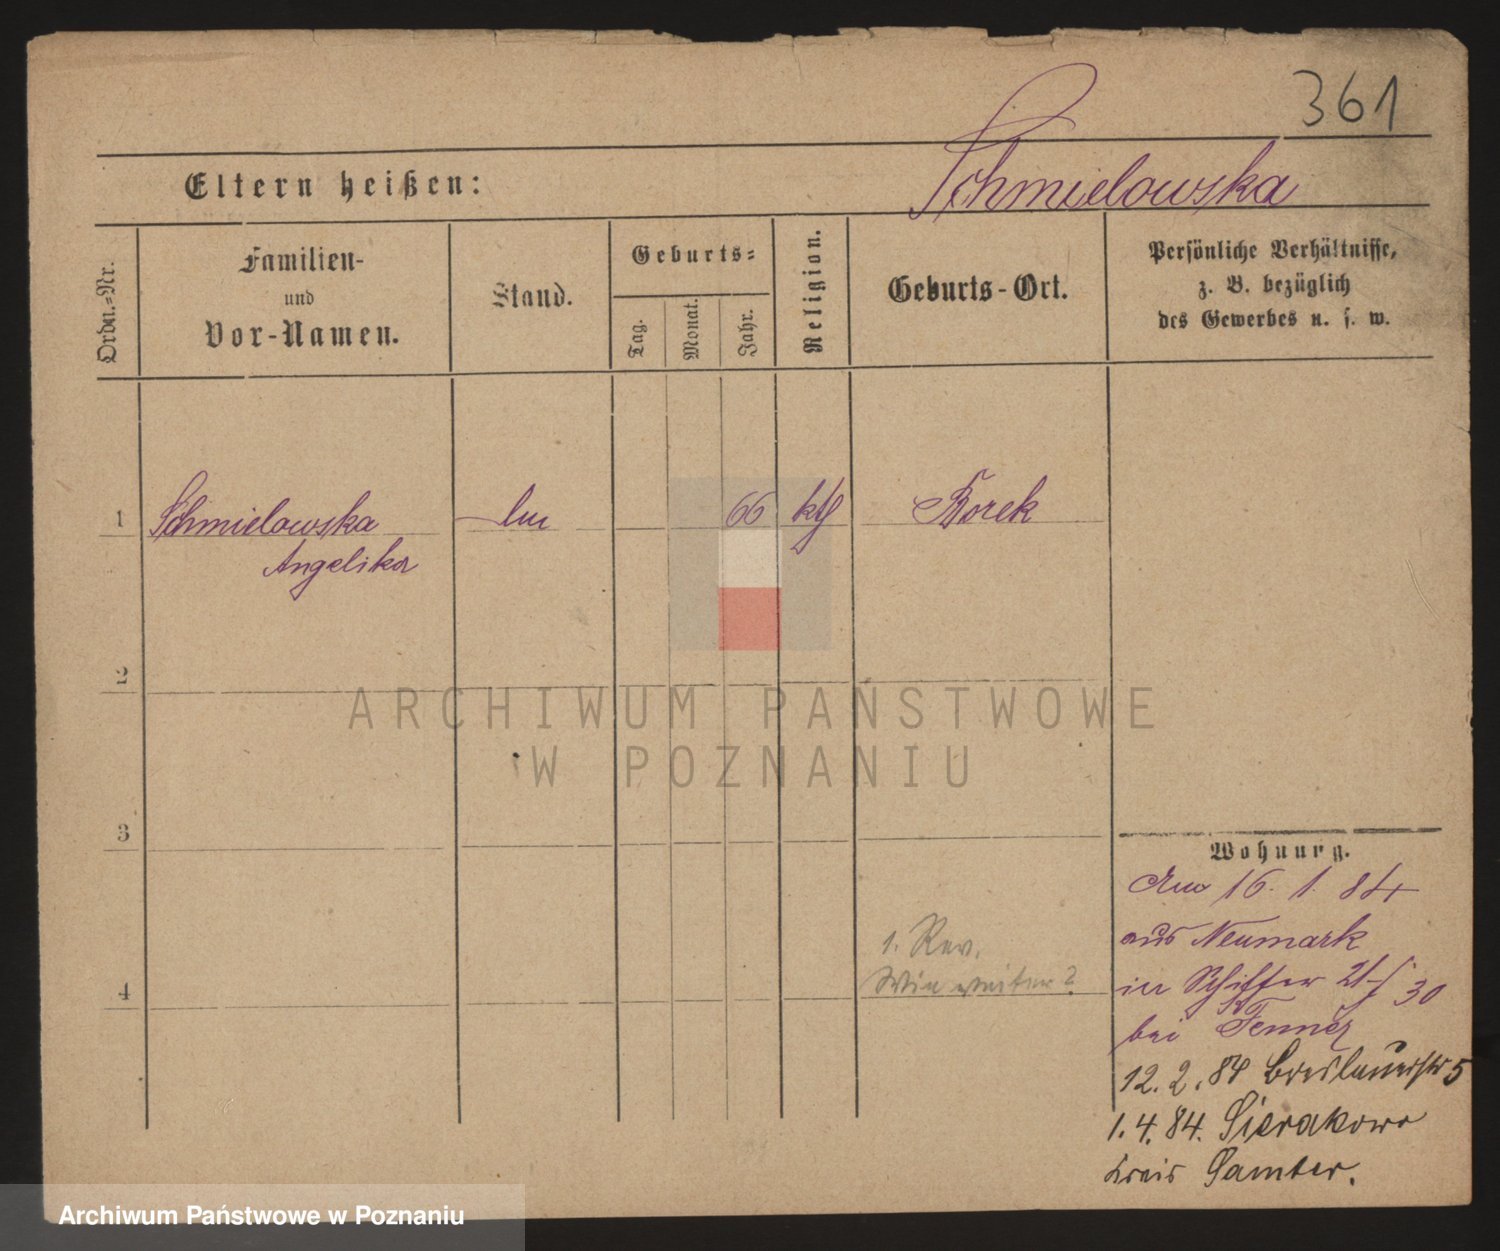 361
Schmielowska
Eltern heißen:
Ordn.=Nr.
Familien-
und
Vor-Namen.
Stand.
Geburts=
Tag.
Monat.
Jahr.
Religion.
Geburts-Ort.
Persönliche Verhältnisse,
z. B. bezüglich
des Gewerbes u. s. w.
1
Schmielowska
Angelika
66
kth
Borek
2
ARCHIWUM PAŃSTWOWE
W POZNANIU
3
Wohnung.
16. 1. 84
aus Neumark
1. Rev.
in Schiffer 21/30
4
bei Fenner
12. 2. 84 Breslauerstr 5
1. 4. 84. Sierakowo
Kreis Samter.
Archiwum Państwowe w Poznaniu